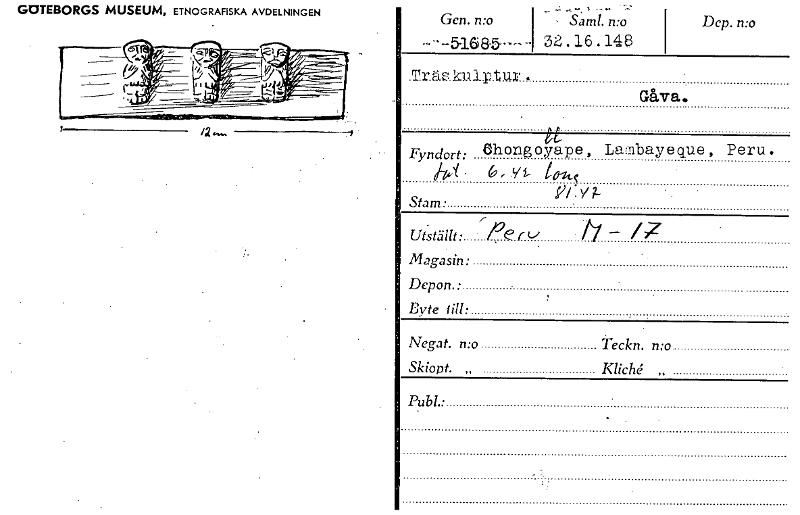 GÖTEBORGS MUSEUM, ETNOGRAFISKA AVDELNINGEN
12 cm
Gen. n:o Saml. n:o Dep. n:o
51685 32.16.148
Träskulptur.
Gåva.
ll
Fyndort: Chongoyape, Lambayeque, Peru.
lat. 6.42 long
81.47
Stam:
Utställt: Peru M-17
Magasin:
Depon.:
Byte till:
Negat. n:o Teckn. n:o
Skiopt. „ Kliché „
Publ.: